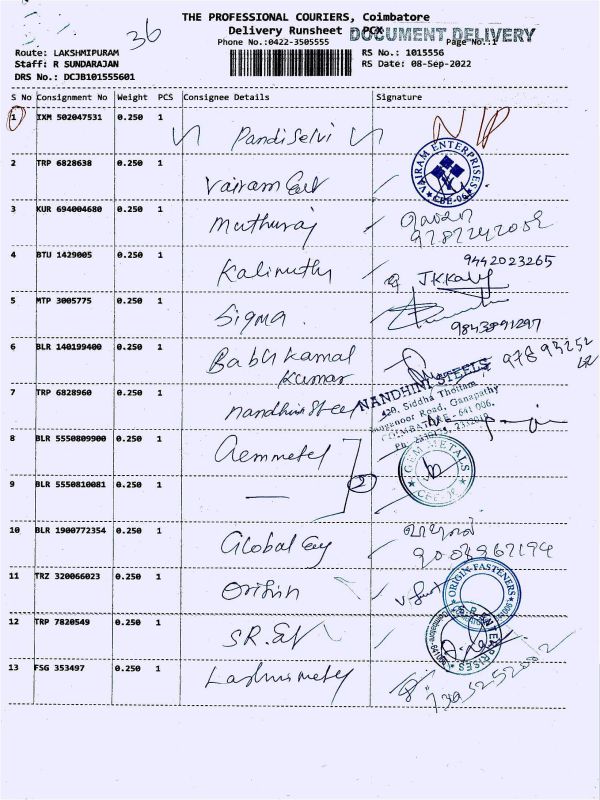 THE PROFESSIONAL COURIERS, Coimbatore
36
Delivery Runsheet PCX
DOCUMENT DELIVERY
Phone No.:0422-3505555
Page No.:1
Route: LAKSHMIPURAM
RS No.: 1015556
Staff: R SUNDARAJAN
RS Date: 08-Sep-2022
DRS No.: DCJB101555601
S No Consignment No Weight PCS Consignee Details Signature
1 IXM 502047531 0.250 1
Pandiselvi
2 TRP 6828638 0.250 1
VAIRAM ENTERPRISES
CBE-06
Vairam Ent
3 KUR 694004680 0.250 1
Muthuraj
4 BTU 1429005 0.250 1
9442023265
Kalimuthu
J.K.Kaly
5 MTP 3005775 0.250 1
Sigma
9843891297
6 BLR 140199400 0.250 1
Babu Kamal
Kumar
7 TRP 6828960 0.250 1
NANDHINI STEELS
420, Siddha Thottam
Sanganoor Road, Ganapathy
COIMBATORE - 641 006.
Nandhini Steel
8 BLR 5550809900 0.250 1
Gemmetal
GEM METALS
2
9 BLR 5550810081 0.250 1
10 BLR 1900772354 0.250 1
Global
11 TRZ 320066023 0.250 1
Origin
ORIGIN FASTENERS
12 TRP 7820549 0.250 1
S.R. Ent
S.R. ENTERPRISES
13 FSG 353497 0.250 1